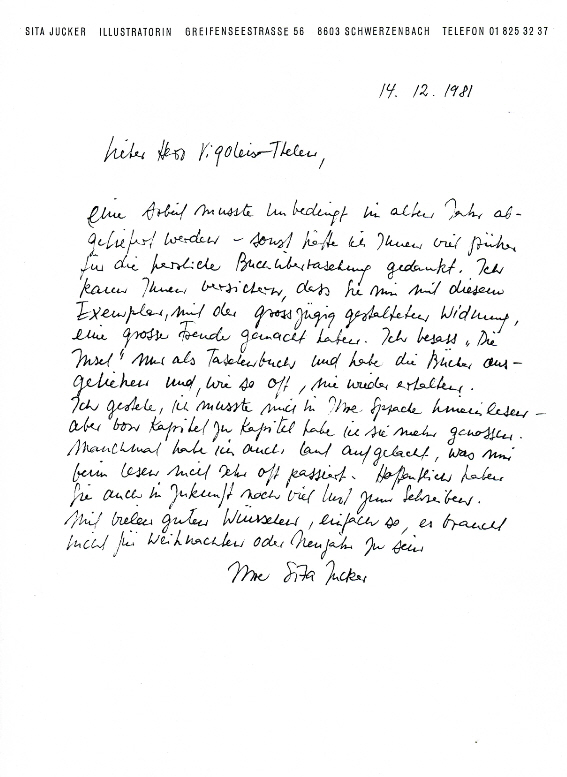 SITA JUCKER ILLUSTRATORIN GREIFENSEESTRASSE 56 8603 SCHWERZENBACH TELEFON 01 825 32 37
14. 12. 1981
Lieber Herr Vigoleis-Thelen,
eine Arbeit musste unbedingt im alten Jahr ab-
geliefert werden – sonst hätte ich Ihnen viel früher
für die herzliche Buchüberraschung gedankt. Ich
kann Ihnen versichern, dass Sie mir mit diesem
Exemplar, mit der grosszügig gestalteten Widmung,
eine grosse Freude gemacht haben. Ich besass „Die
Insel" nur als Taschenbuch und habe die Bücher aus-
geliehen und, wie so oft, nie wieder erhalten.
Ich gestehe, ich musste mich in Ihre Sprache hineinlesen –
aber von Kapitel zu Kapitel habe ich sie mehr genossen.
Manchmal habe ich auch laut aufgelacht, was mir
beim lesen nicht sehr oft passiert. Hoffentlich haben
Sie auch in Zukunft noch viel Lust zum Schreiben.
Mit vielen guten Wünschen, einfach so, es braucht
nicht für Weihnachten oder Neujahr zu sein
Ihre Sita Jucker